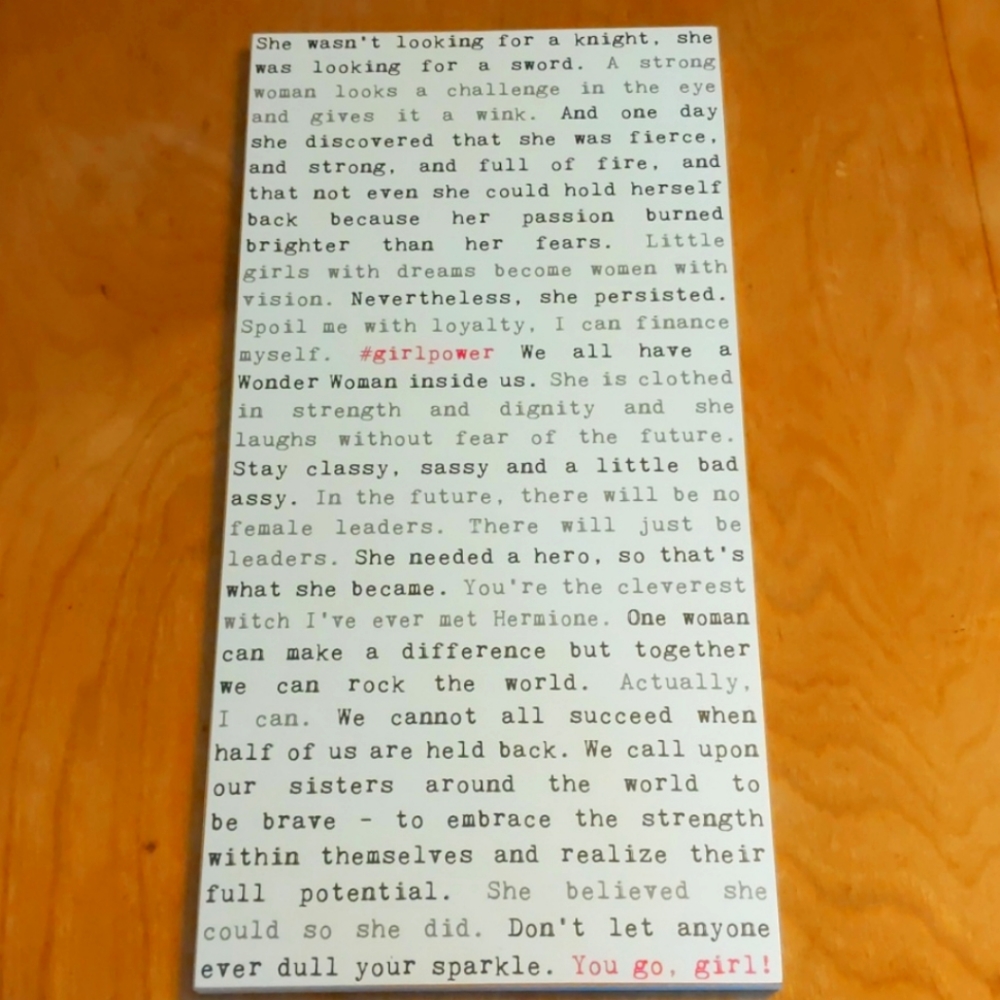 She wasn't looking for a knight, she
was looking for a sword. A strong
woman looks a challenge in the eye
and gives it a wink. And one day
she discovered that she was fierce,
and strong, and full of fire, and
that not even she could hold herself
back because her passion burned
brighter than her fears. Little
girls with dreams become women with
vision. Nevertheless, she persisted.
Spoil me with loyalty, I can finance
myself. #girlpower We all have a
Wonder Woman inside us. She is clothed
in strength and dignity and she
laughs without fear of the future.
Stay classy, sassy and a little bad
assy. In the future, there will be no
female leaders. There will just be
leaders. She needed a hero, so that's
what she became. You're the cleverest
witch I've ever met Hermione. One woman
can make a difference but together
we can rock the world. Actually,
I can. We cannot all succeed when
half of us are held back. We call upon
our sisters around the world to
be brave - to embrace the strength
within themselves and realize their
full potential. She believed she
could so she did. Don't let anyone
ever dull your sparkle. You go, girl!